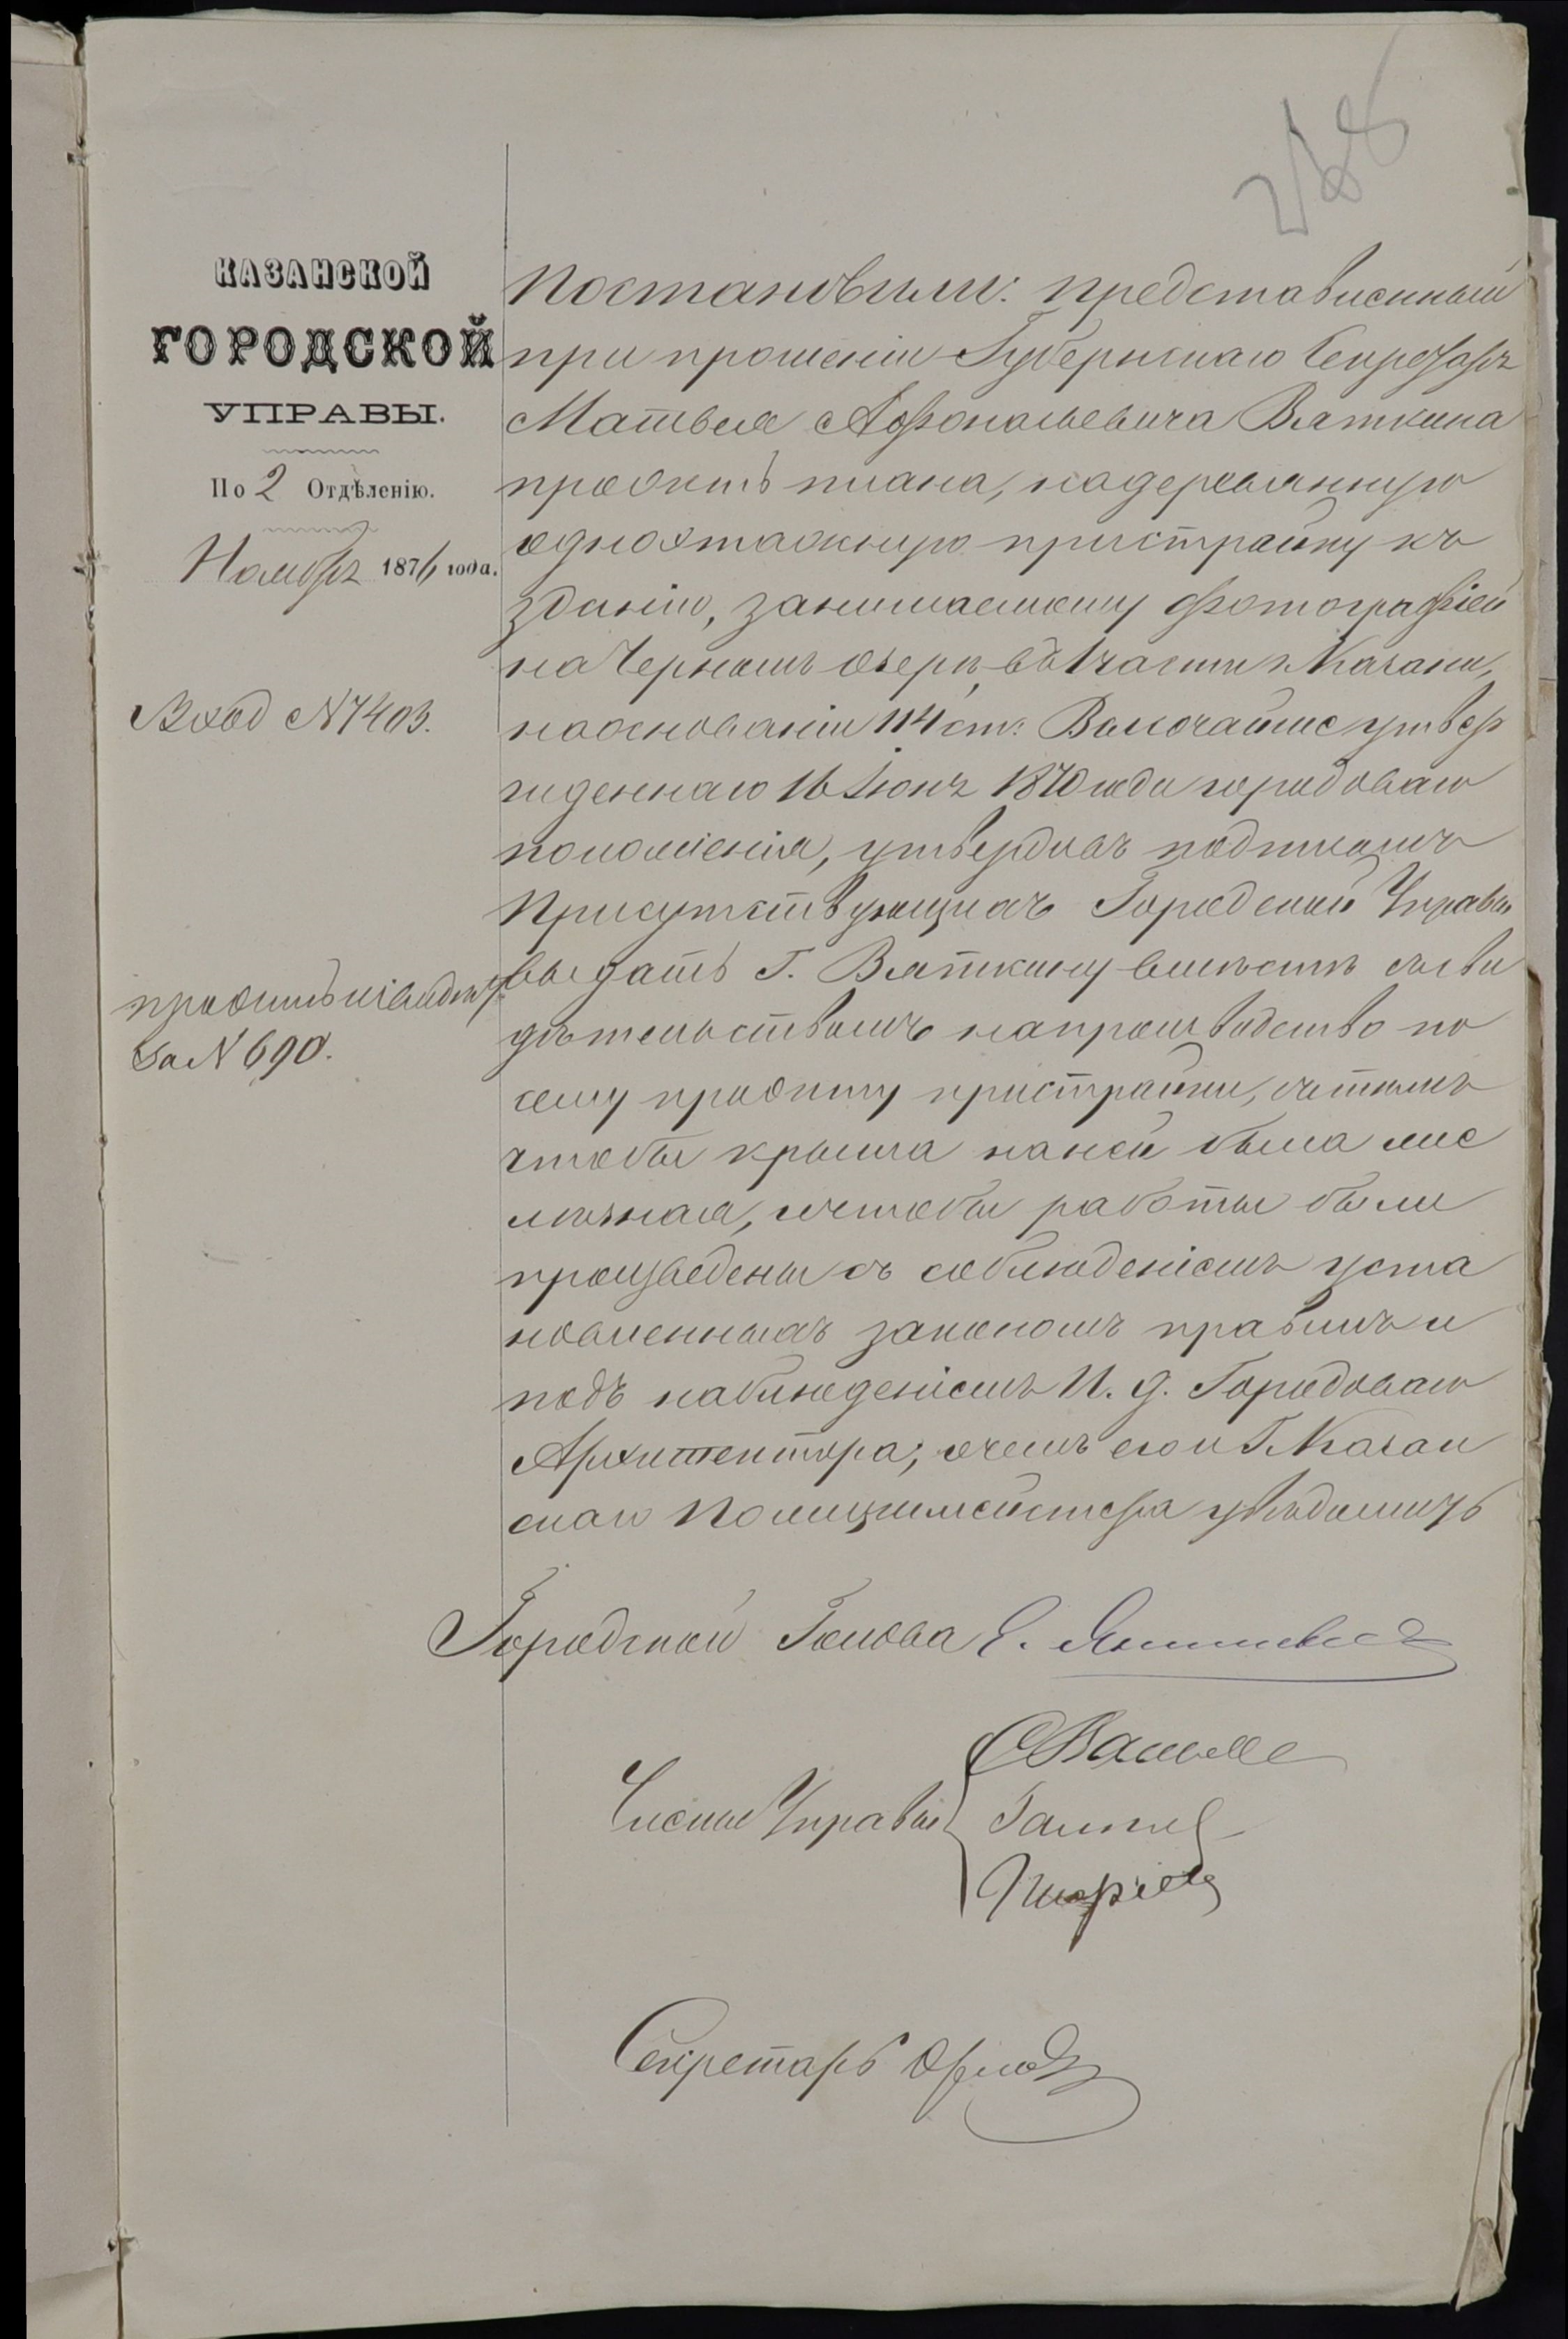 КАЗАНСКОЙ
ГОРОДСКОЙ
УПРАВЫ.
По 2 Отдѣленію.
Ноября 1876 года.
Вход №7403.
проэктъ выданъ
за №690.
Постановили: представленный
при прошеніи Губернскаго Секретаря
Матвея Афонасьевича Вяткина
проэктъ плана, на деревянную
одноэтажную пристройку къ
зданію, занимаемому фотографіей
на Черномъ озерѣ, въ 1 части г. Казани,
на основаніи 114 ст. Высочайше утвер
жденнаго 16 Іюня 1870 года городоваго
положенія, утвердивъ подписомъ
Присутствующихъ Городской Управы
выдать Г. Вяткину вместѣ съ сви
дѣтельствомъ на производство по
сему проэкту пристройки, съ тѣмъ
чтобы крыша на ней была же
лѣзная, и чтобы работы были
произведены съ соблюденіемъ уста
новленныхъ закономъ правилъ и
подъ наблюденіемъ И. д. Городоваго
Архитектора; о чемъ его и Г. Казан
скаго Полицеймейстера увѣдомить
Городской Голова Е. Янишевскій
Члены Управы
Секретарь Орловъ